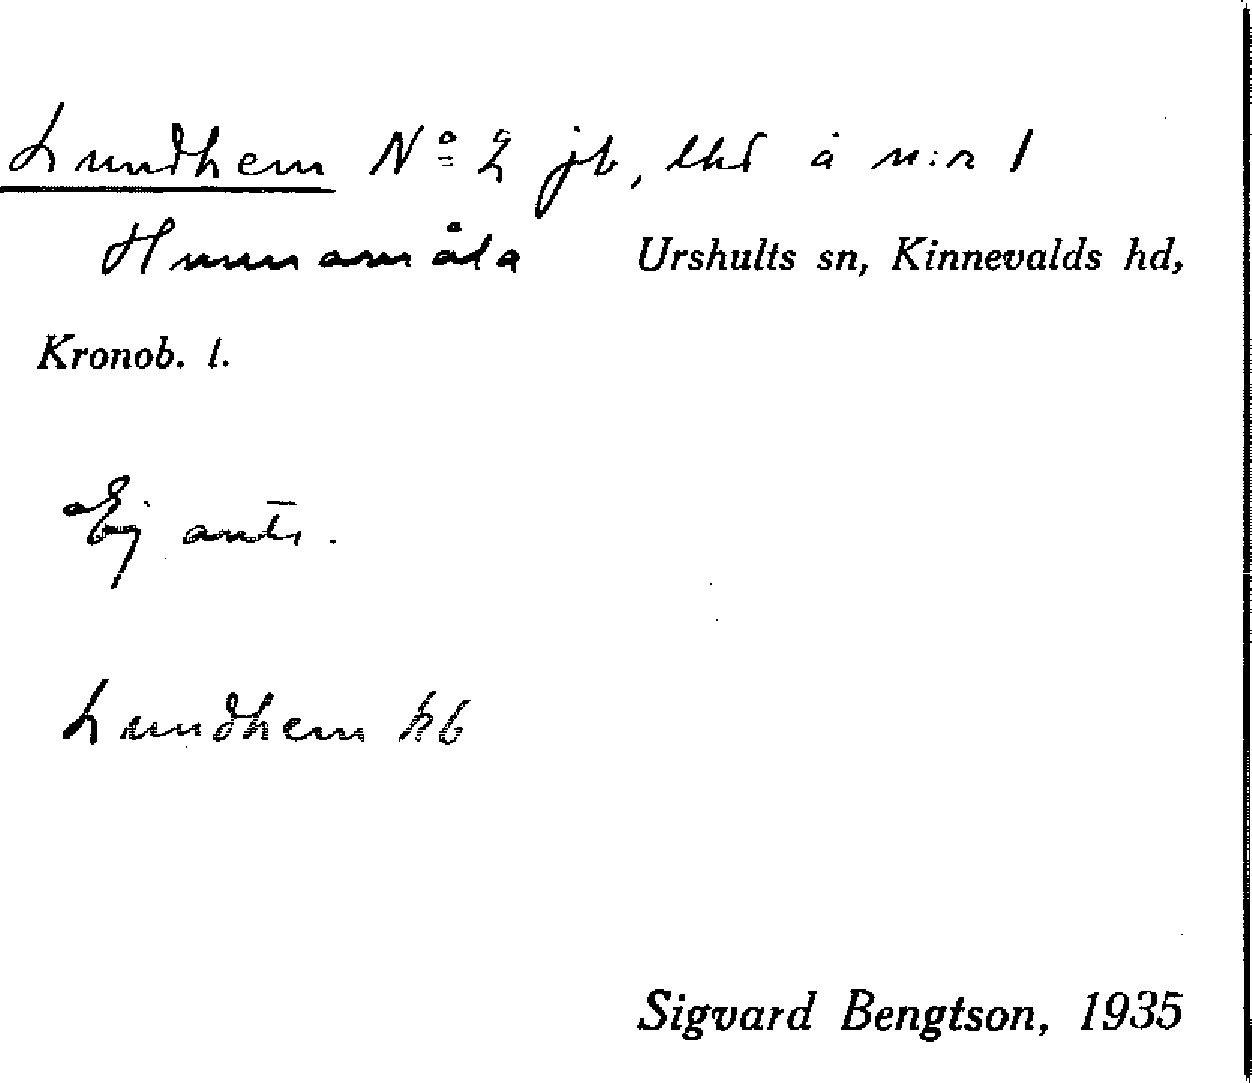 Lundhem No 2 jb, lhd å n:r 1
Hunnamåla Urshults sn, Kinnevalds hd,
Kronob. l.
Ej antr.
Lundhem kb
Sigvard Bengtson, 1935